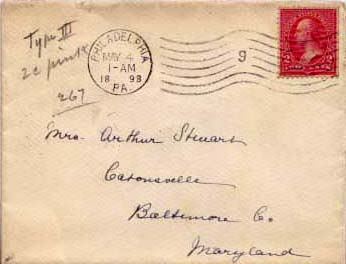 Type III
2c pink
267
PHILADELPHIA
MAY 4
1-AM
18 98
PA.
9
Mrs. Arthur Stewart
Catonsville
Baltimore Co.
Maryland